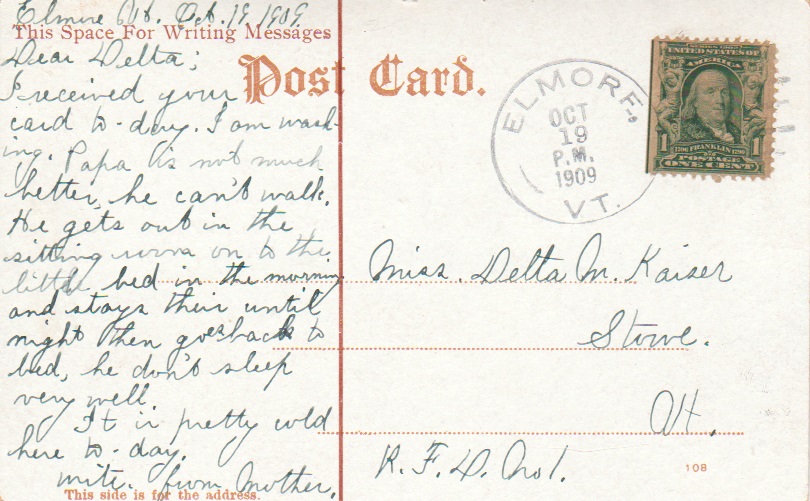 Elmore Vt. Oct. 19, 1909.
This Space For Writing Messages
Dear Delta;
I received your
card to-day. I am wash-
ing. Papa is not much
better, he can't walk.
He gets out in the
sitting room on to the
little bed in the morning
and stays their until
night then goes back to
bed, he don't sleep
very well.
It is pretty cold
here to-day.
write. from Mother.
This side is for the address.
Post Card.
ELMORE,
OCT
19
P.M.
1909
VT.
SERIES 1902
UNITED STATES OF
AMERICA
1706 FRANKLIN 1790
1 1
POSTAGE
ONE CENT
Miss. Delta M. Kaiser
Stowe.
Vt.
R. F. D. No 1.
108